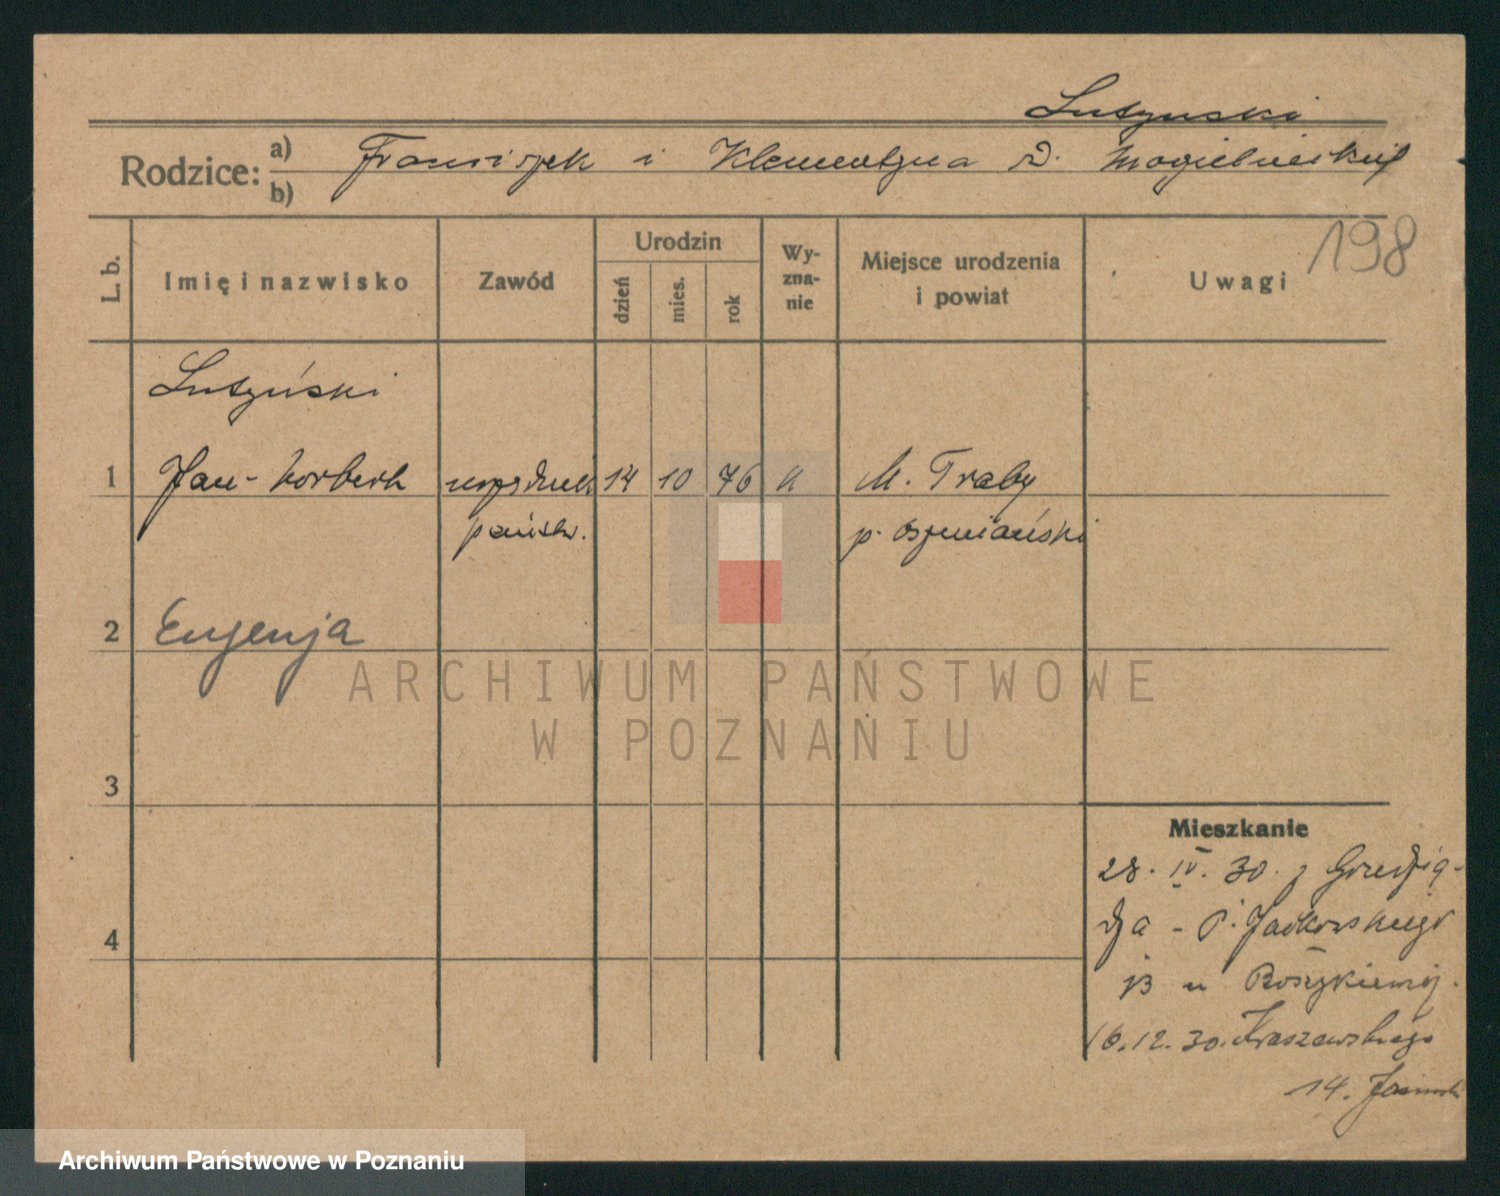 Lutynski
Rodzice: a) b) Franciszek i Klementyna D. Mogielnickich
198
L. b.
Imię i nazwisko
Zawód
Urodzin
dzień
mies.
rok
Wy-
zna-
nie
Miejsce urodzenia
i powiat
Uwagi
Lutyński
1 Jan-Norbert urzędnik 14 10 76 k M. Traby
państw. p. oszmiański
2 Eugenja
ARCHIWUM PAŃSTWOWE
W POZNANIU
3
Mieszkanie
28. IV. 30. z
4
dza - P. Jackowskiego
u
16.12.30. Kraszewskiego
14.
Archiwum Państwowe w Poznaniu